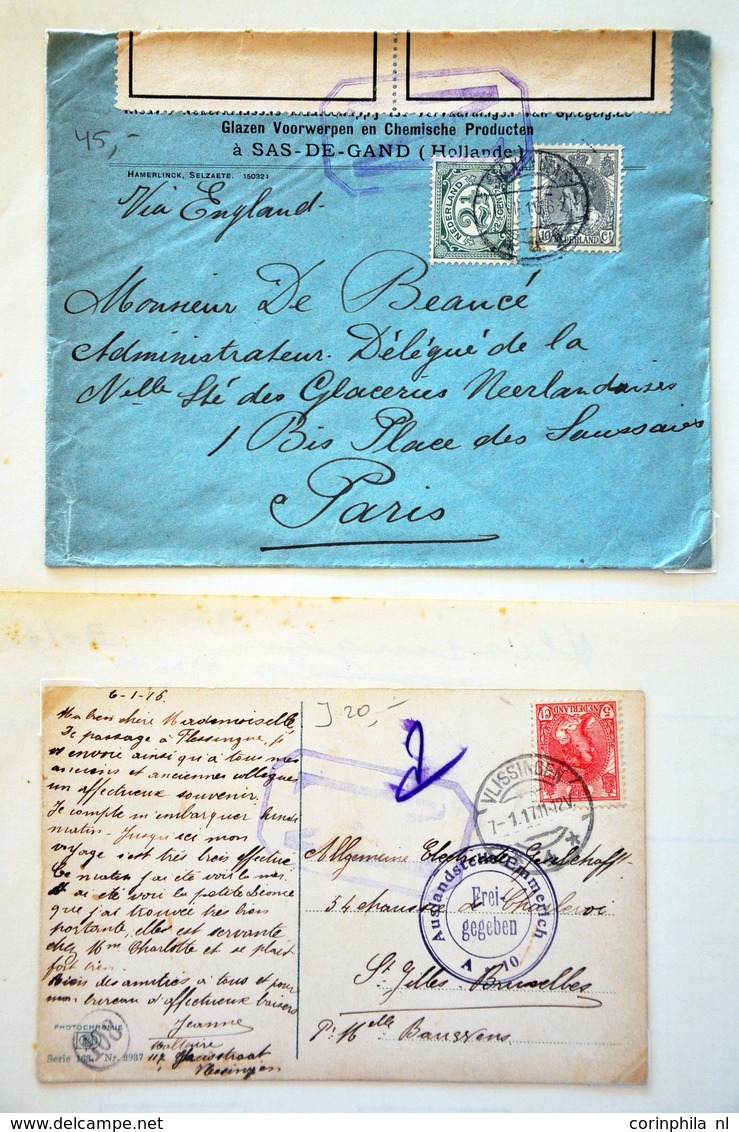 Glazen Voorwerpen en Chemische Producten
à SAS-DE-GAND (Hollande)
HAMERLINCK, SELZAETE. 150321
45,-
Via England
NEDERLAND
2½
10 NEDERLAND Ct
Monsieur De Beaucé
Administrateur-Délégué de la
Nelle Sté des Glaceries Neerlandaises
1 Bis Place des Saussaies
à Paris
6-1-16.
Ma bien chère Mademoiselle
De passage à Flessingue, je
et envoie ainsi qu'à tous mes
anciens et anciennes collègues
un affectueux souvenir.
Je compte m'embarquer
matin. Jusqu'ici mon
voyage s'est très bien effectué
Ce matin j'ai été voir la mer.
J'ai été voir la petite
que j'ai trouvée très bien
portante, elle est servante
chez Mme Charlotte et se plait
fort bien.
Bien des amitiés à tous et pour
mon bureau d'affectueux baisers
Jeanne
J 20,-
5 NEDERLAND Ct
VLISSINGEN
7-1.17.11-12V.
Allgemeine Gesellschaft
54 chaussée de Charleroi
St Gilles-Bruxelles
Pr Melle
Auslandstelle Emmerich
Frei-
gegeben
A 10
PHOTOCHROMIE
Serie 168. Nr. 3937
corinphila nl